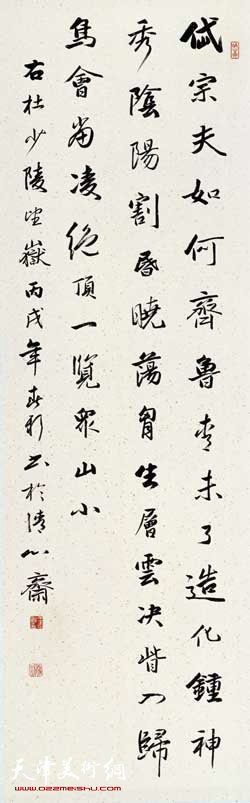 岱宗夫如何齊魯青未了造化鍾神
秀陰陽割昏曉蕩胸生層雲決眥入歸
鳥會當凌絕頂一覽眾山小
右杜少陵望嶽丙戌年春彩書於清心齋
天津美術網
www.022meishu.com